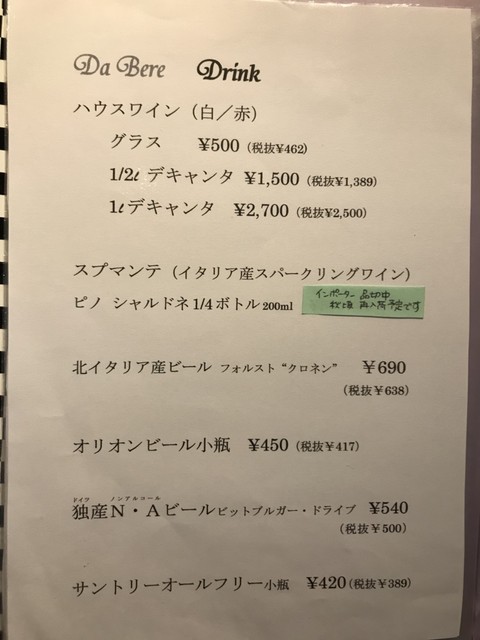 Da Bere Drink
ハウスワイン（白／赤）
グラス ¥500（税抜¥462）
1/2ℓ デキャンタ ¥1,500（税抜¥1,389）
1ℓデキャンタ ¥2,700（税抜¥2,500）
スプマンテ（イタリア産スパークリングワイン）
ピノ シャルドネ1/4ボトル 200ml
インポーター 品切中
秋頃 再入荷予定です
北イタリア産ビール フォルスト“クロネン” ￥690
（税抜￥638）
オリオンビール小瓶 ¥450（税抜¥417）
ドイツ ノンアルコール
独産N・Aビールビットブルガー・ドライブ ¥540
（税抜￥500）
サントリーオールフリー小瓶 ¥420（税抜¥389）